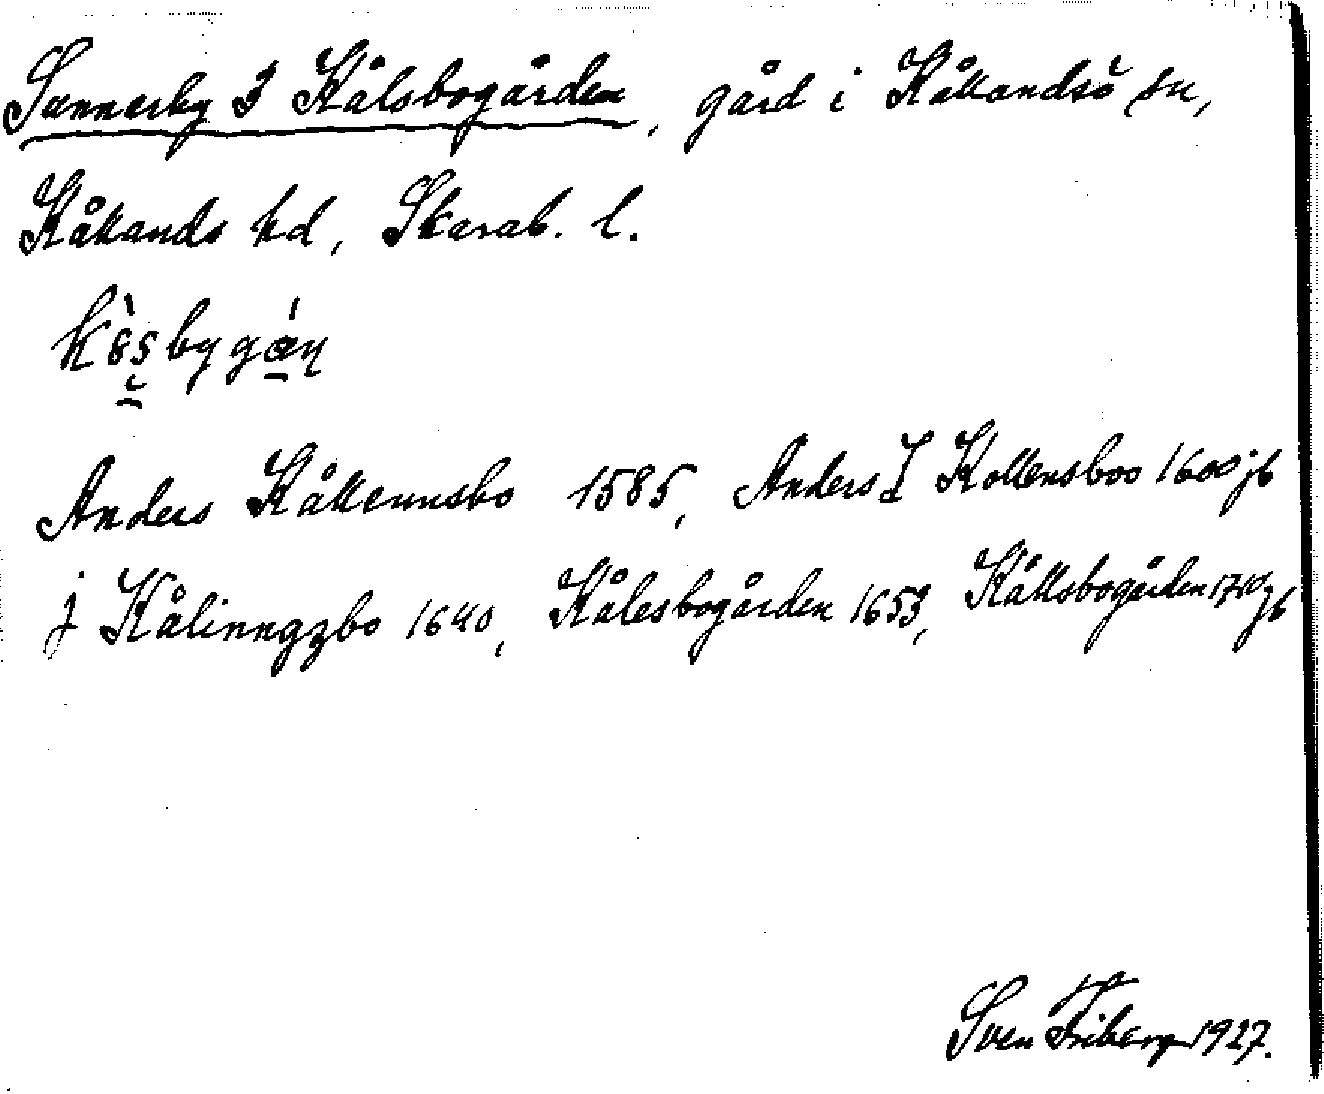 Sunnerby 3 Kålsbogården, gård i Kållandsö sn,
Kållands hd, Skarab. l.
Anders Kållennsbo 1585, Anders I Kollensboo 1600 jb
j Kålinngzbo 1640, Kålesbogården 1653, Kållsbogården 1740 jb
Sven Friberg 1927.